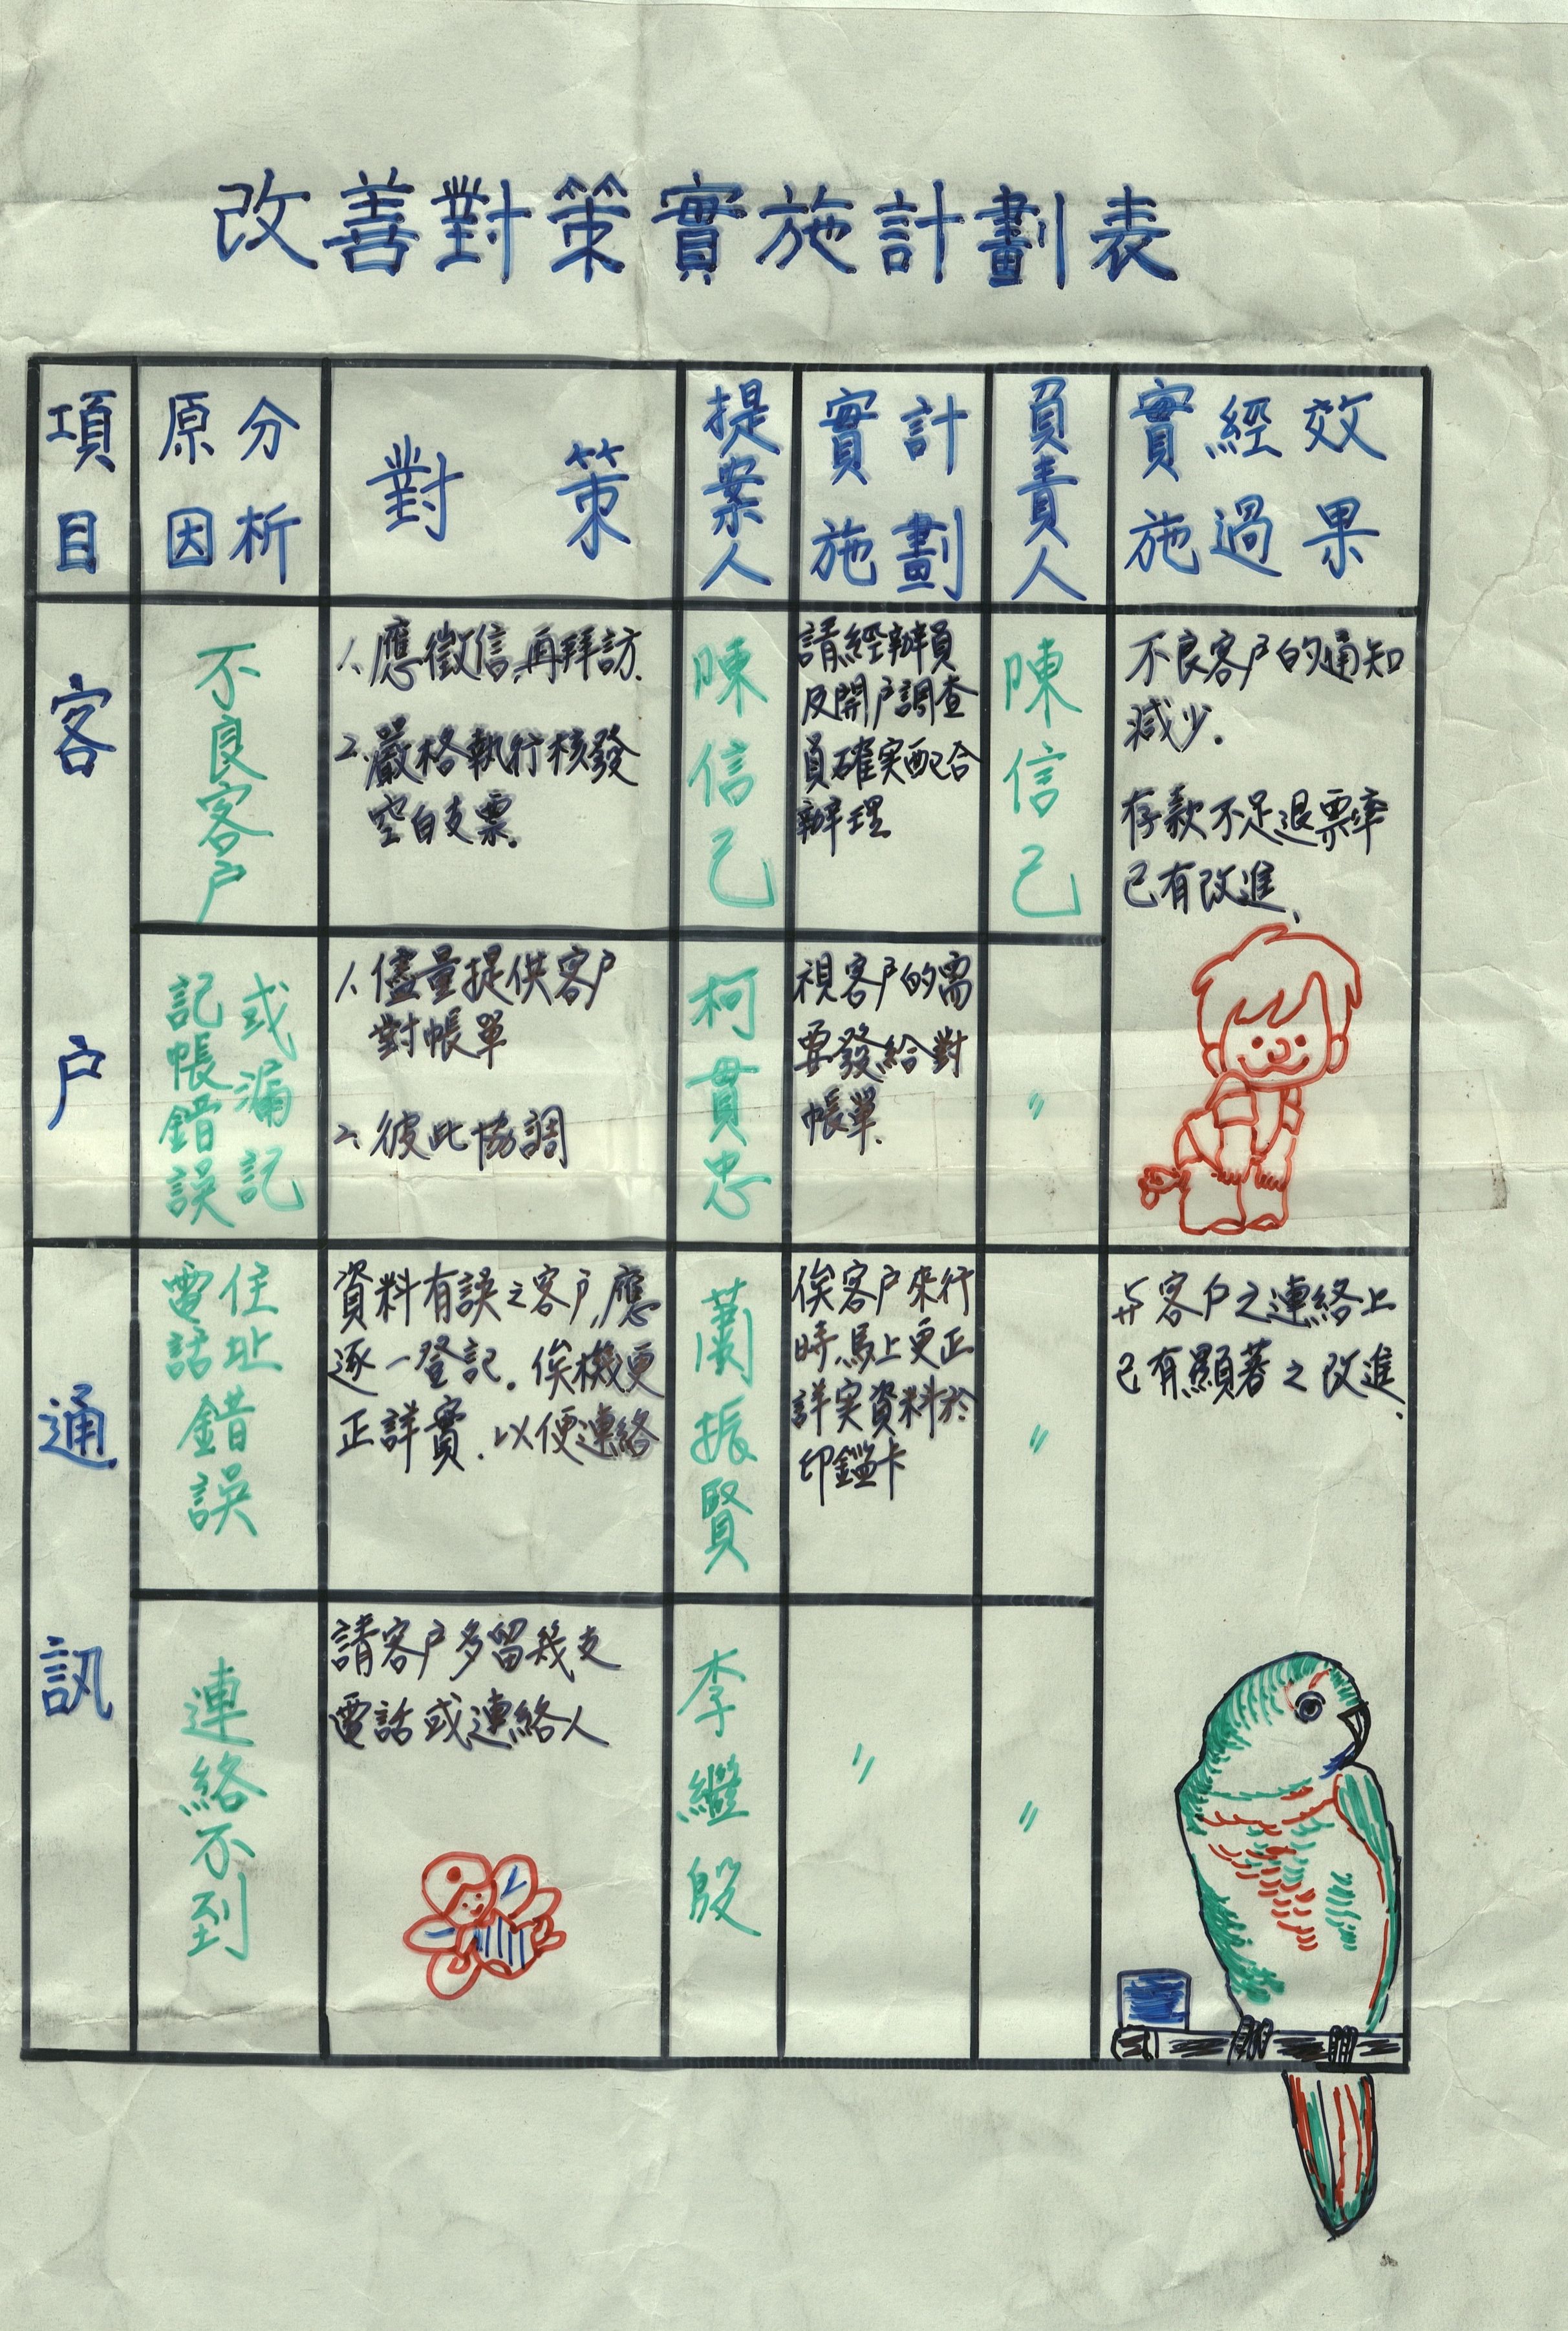 改善對策實施計劃表
項目
原因分析
對策
提案人
實施計劃
負責人
實施經過效果
客户
不良客户
1、應徵信,再拜訪.
2、嚴格執行核發
空白支票.
陳信己
請經辦員
及開户調查
員確实配合
辦理
陳信己
不良客户的通知
減少.
存款不足退票率
已有改進、
記帳錯誤
或漏記
1、儘量提供客户
對帳單
2、彼此協調
柯貫忠
視客户的需
要發給對
帳單.
〃
通訊
電話
住址
錯
誤
資料有誤之客户,應
逐一登記.俟機更
正詳實.以便連絡
振賢
俟客户來行
時,馬上更正
詳实資料於
印鑑卡
〃
与客户之連絡上
已有顯著之改進、
連絡不到
請客户多留幾支
電話或連絡人
李繼殷
〃
〃